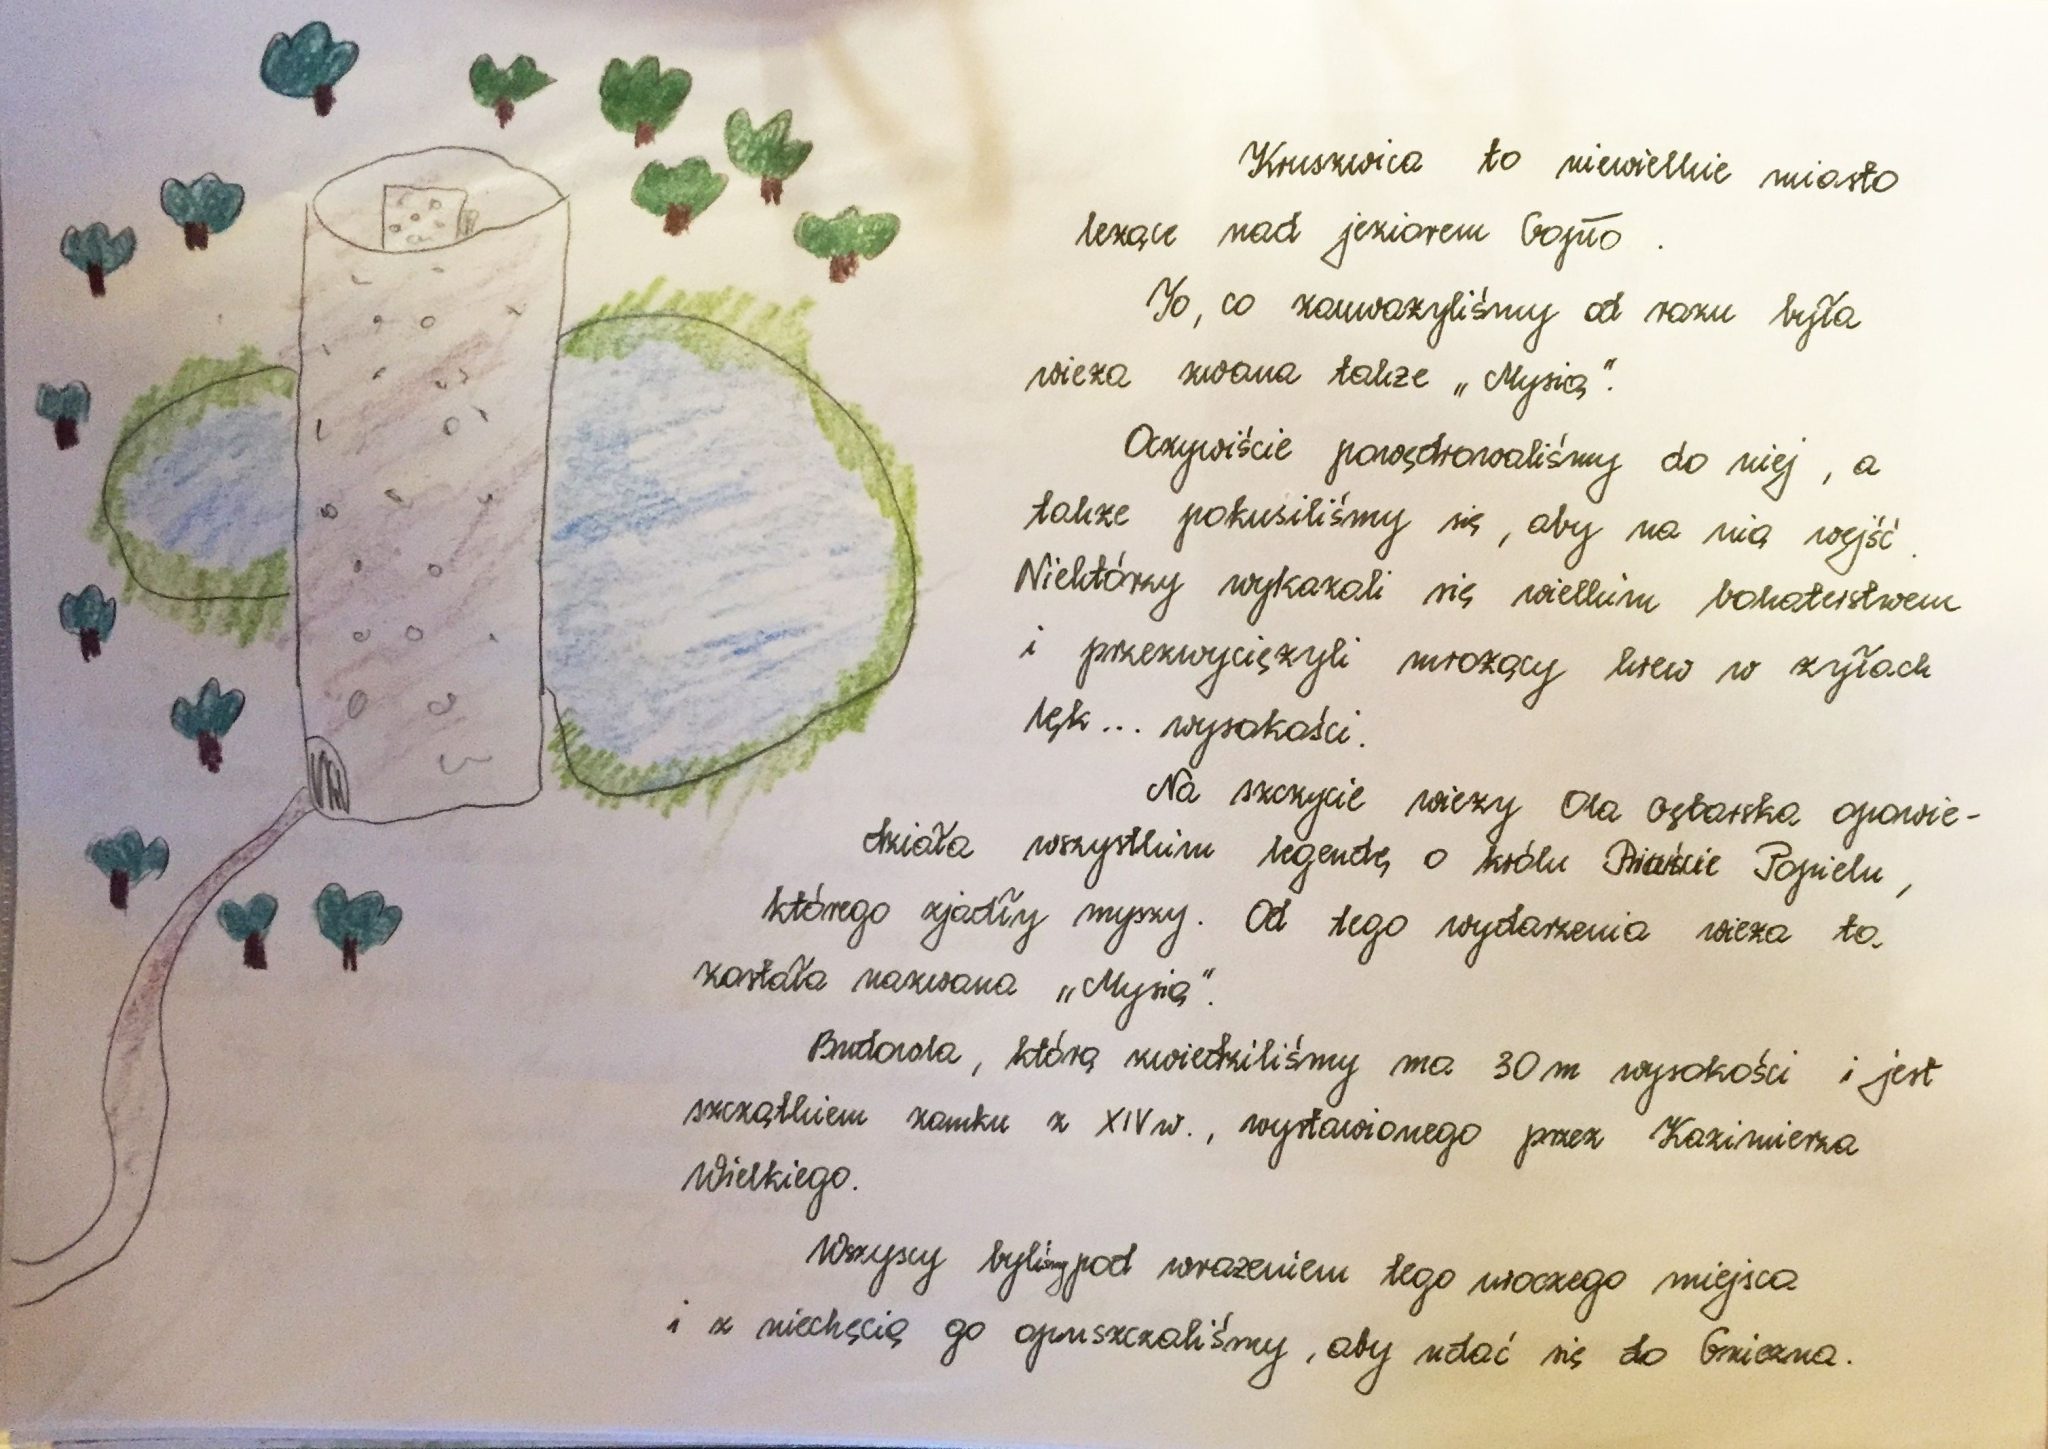 Kruszwica to niewielkie miasto
leżące nad jeziorem Gopło.
To, co zauważyliśmy od razu była
wieża zwana także „Mysią”.
Oczywiście powędrowaliśmy do niej, a
także pokusiliśmy się, aby na nią wejść.
Niektórzy wykazali się wielkim bohaterstwem
i przezwyciężyli mrożący krew w żyłach
lęk... wysokości.
Na szczycie wieży Ola Gębarska opowie-
działa wszystkim legendę o królu Popielu,
którego zjadły myszy. Od tego wydarzenia wieża ta
została nazwana „Mysią”.
Budowla, którą zwiedziliśmy ma 30 m wysokości i jest
szczątkiem zamku z XIV w., wystawionego przez Kazimierza
Wielkiego.
Wszyscy byliśmy pod wrażeniem tego uroczego miejsca
i z niechęcią go opuszczaliśmy, aby udać się do Gniezna.